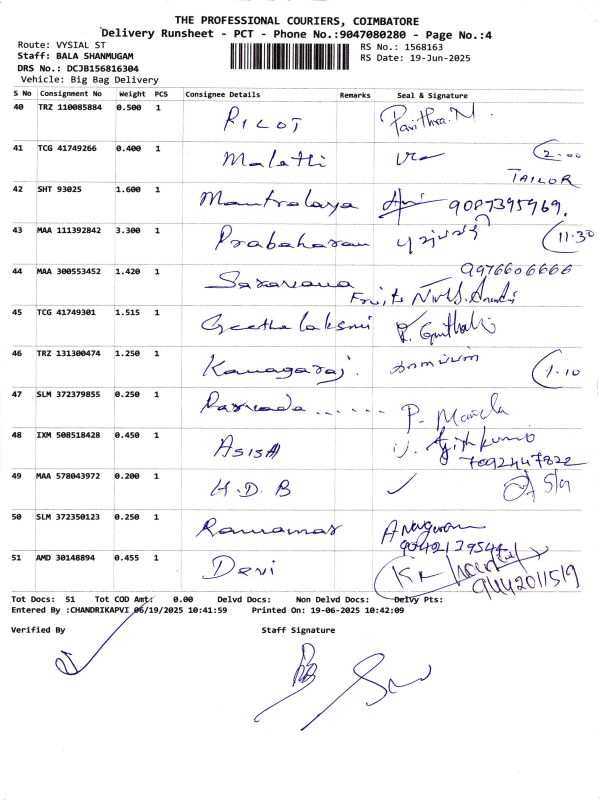 THE PROFESSIONAL COURIERS, COIMBATORE
Delivery Runsheet - PCT - Phone No.:9047080280 - Page No.:4
Route: VYSIAL ST
Staff: BALA SHANMUGAM
DRS No.: DCJB156816304
Vehicle: Big Bag Delivery
RS No.: 1568163
RS Date: 19-Jun-2025
S No Consignment No Weight PCS Consignee Details Remarks Seal & Signature
40 TRZ 110085884 0.500 1 PILOT Pavithra.M.
41 TCG 41749266 0.400 1 Malathi 2.00
TAILOR
42 SHT 93025 1.600 1 Mantralaya 9087395969.
43 MAA 111392842 3.300 1 Prabaharan 11.30
9976606666
44 MAA 300553452 1.420 1 Saravana
Fruits
45 TCG 41749301 1.515 1 Geetha laksmi
46 TRZ 131300474 1.250 1 Kanagaraj. 1.10
47 SLM 372379855 0.250 1 P.
48 IXM 508518428 0.450 1 Asish Ajithkumar
7092447822
49 MAA 578043972 0.200 1 H.D.B
50 SLM 372350123 0.250 1
9042139544
51 AMD 30148894 0.455 1 Devi
9442011519
Tot Docs: 51 Tot COD Amt: 0.00 Delvd Docs: Non Delvd Docs: Delvy Pts:
Entered By :CHANDRIKAPVI 06/19/2025 10:41:59 Printed On: 19-06-2025 10:42:09
Verified By Staff Signature